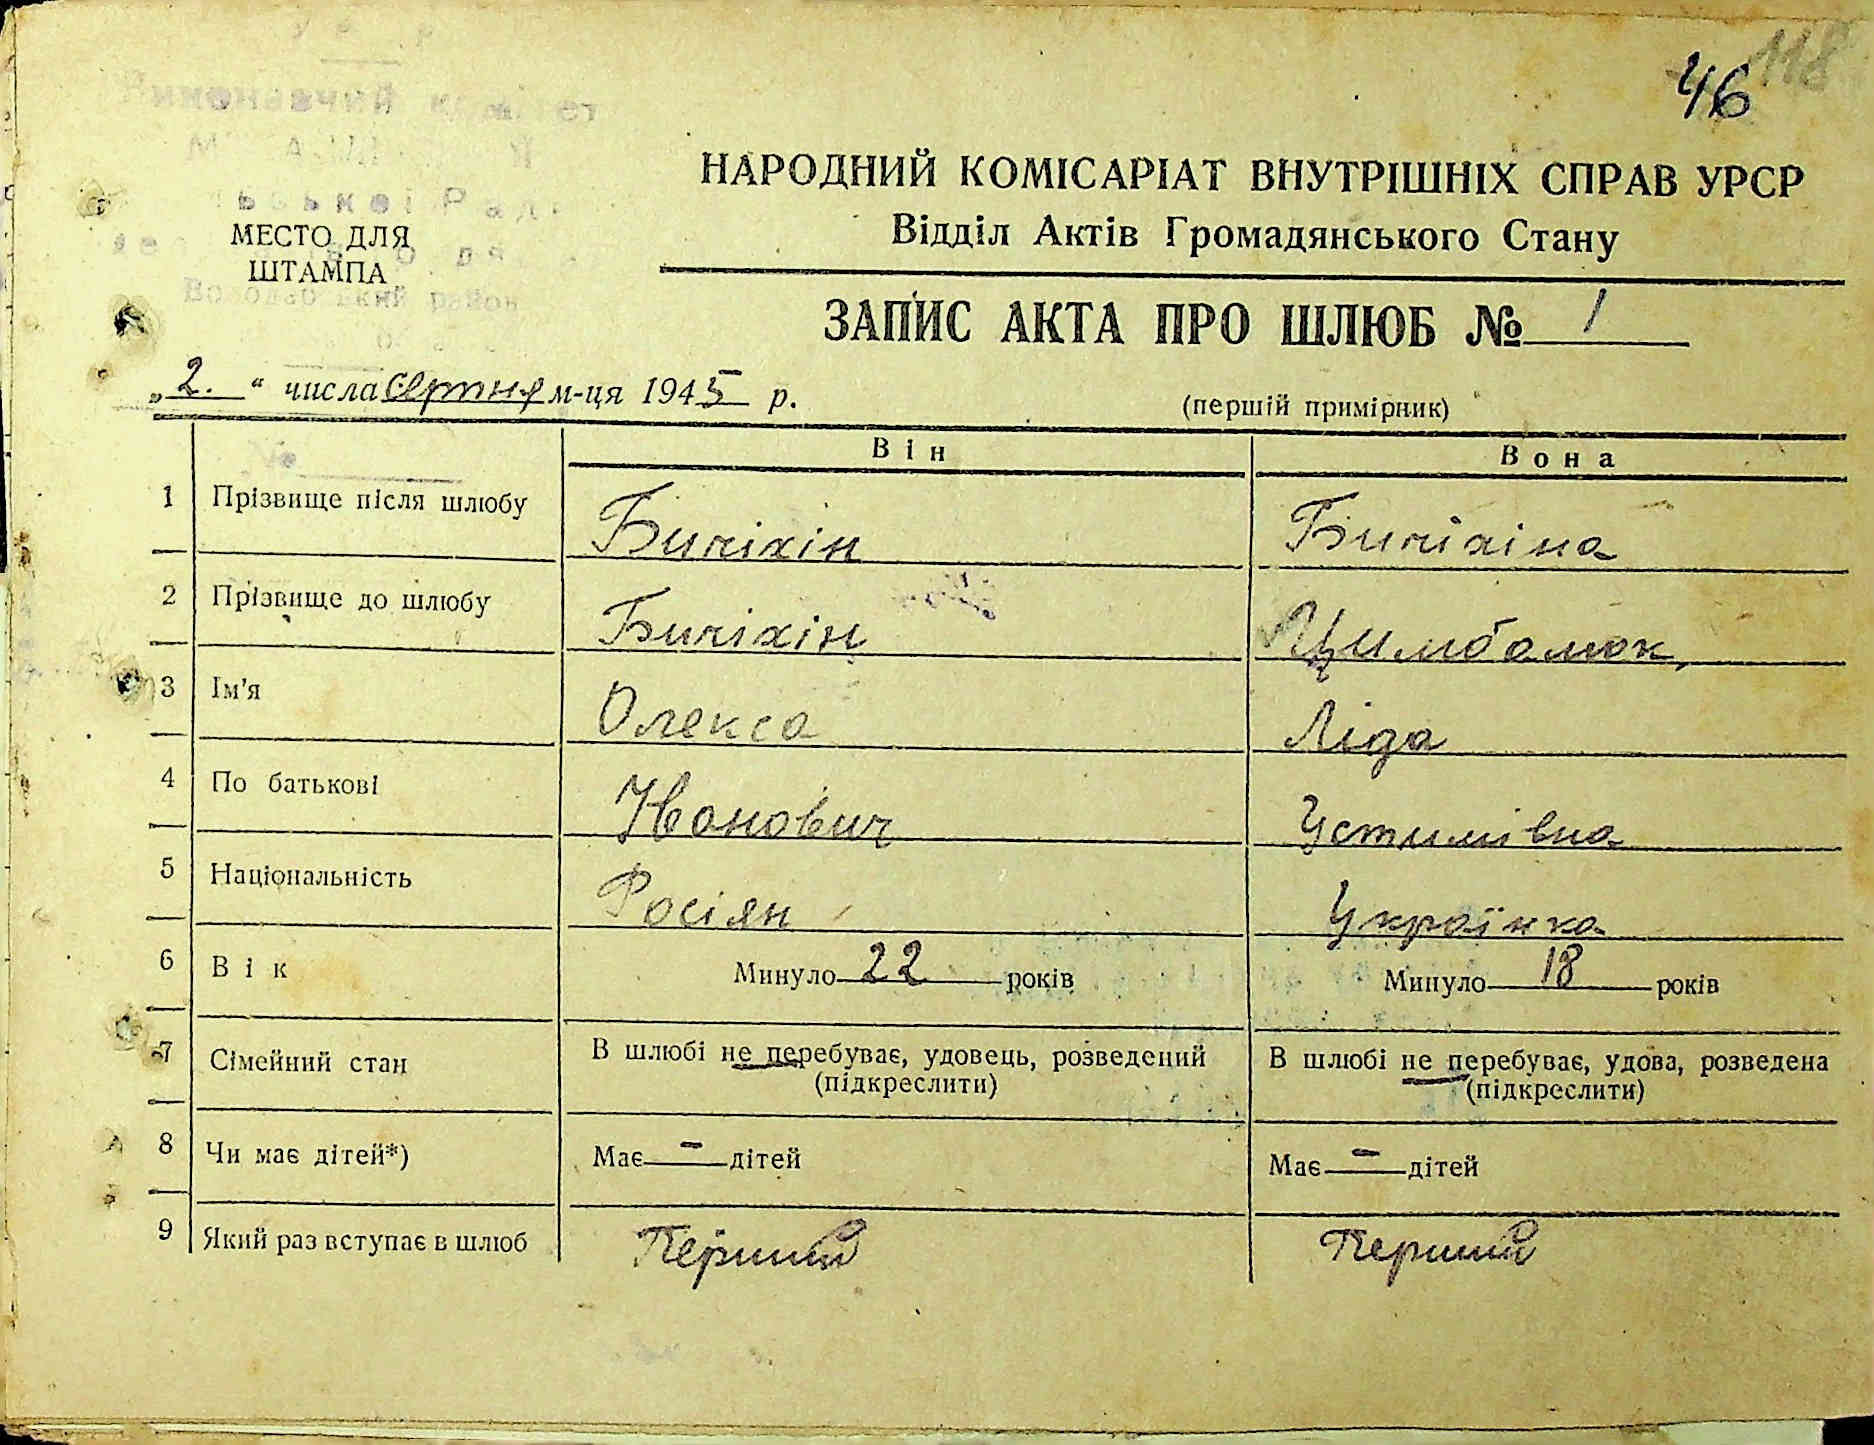 118
46
НАРОДНИЙ КОМІСАРІАТ ВНУТРІШНІХ СПРАВ УРСР
Відділ Актів Громадянського Стану
МЕСТО ДЛЯ
ШТАМПА
ЗАПИС АКТА ПРО ШЛЮБ № 1
„2.“ числа серпня м-ця 1945 р.
(першій примірник)
Він Вона
1 Прізвище після шлюбу Бичіхін Бичіхіна
2 Прізвище до шлюбу Бичіхін Цимбалюк
3 Ім'я Олекса Ліда
4 По батькові Іванович Устимівна
5 Національність Росіян Українка
6 Вік Минуло 22 років Минуло 18 років
7 Сімейний стан В шлюбі не перебуває, удовець, розведений В шлюбі не перебуває, удова, розведена
(підкреслити) (підкреслити)
8 Чи має дітей*) Має — дітей Має — дітей
9 Який раз вступає в шлюб Перший Перший